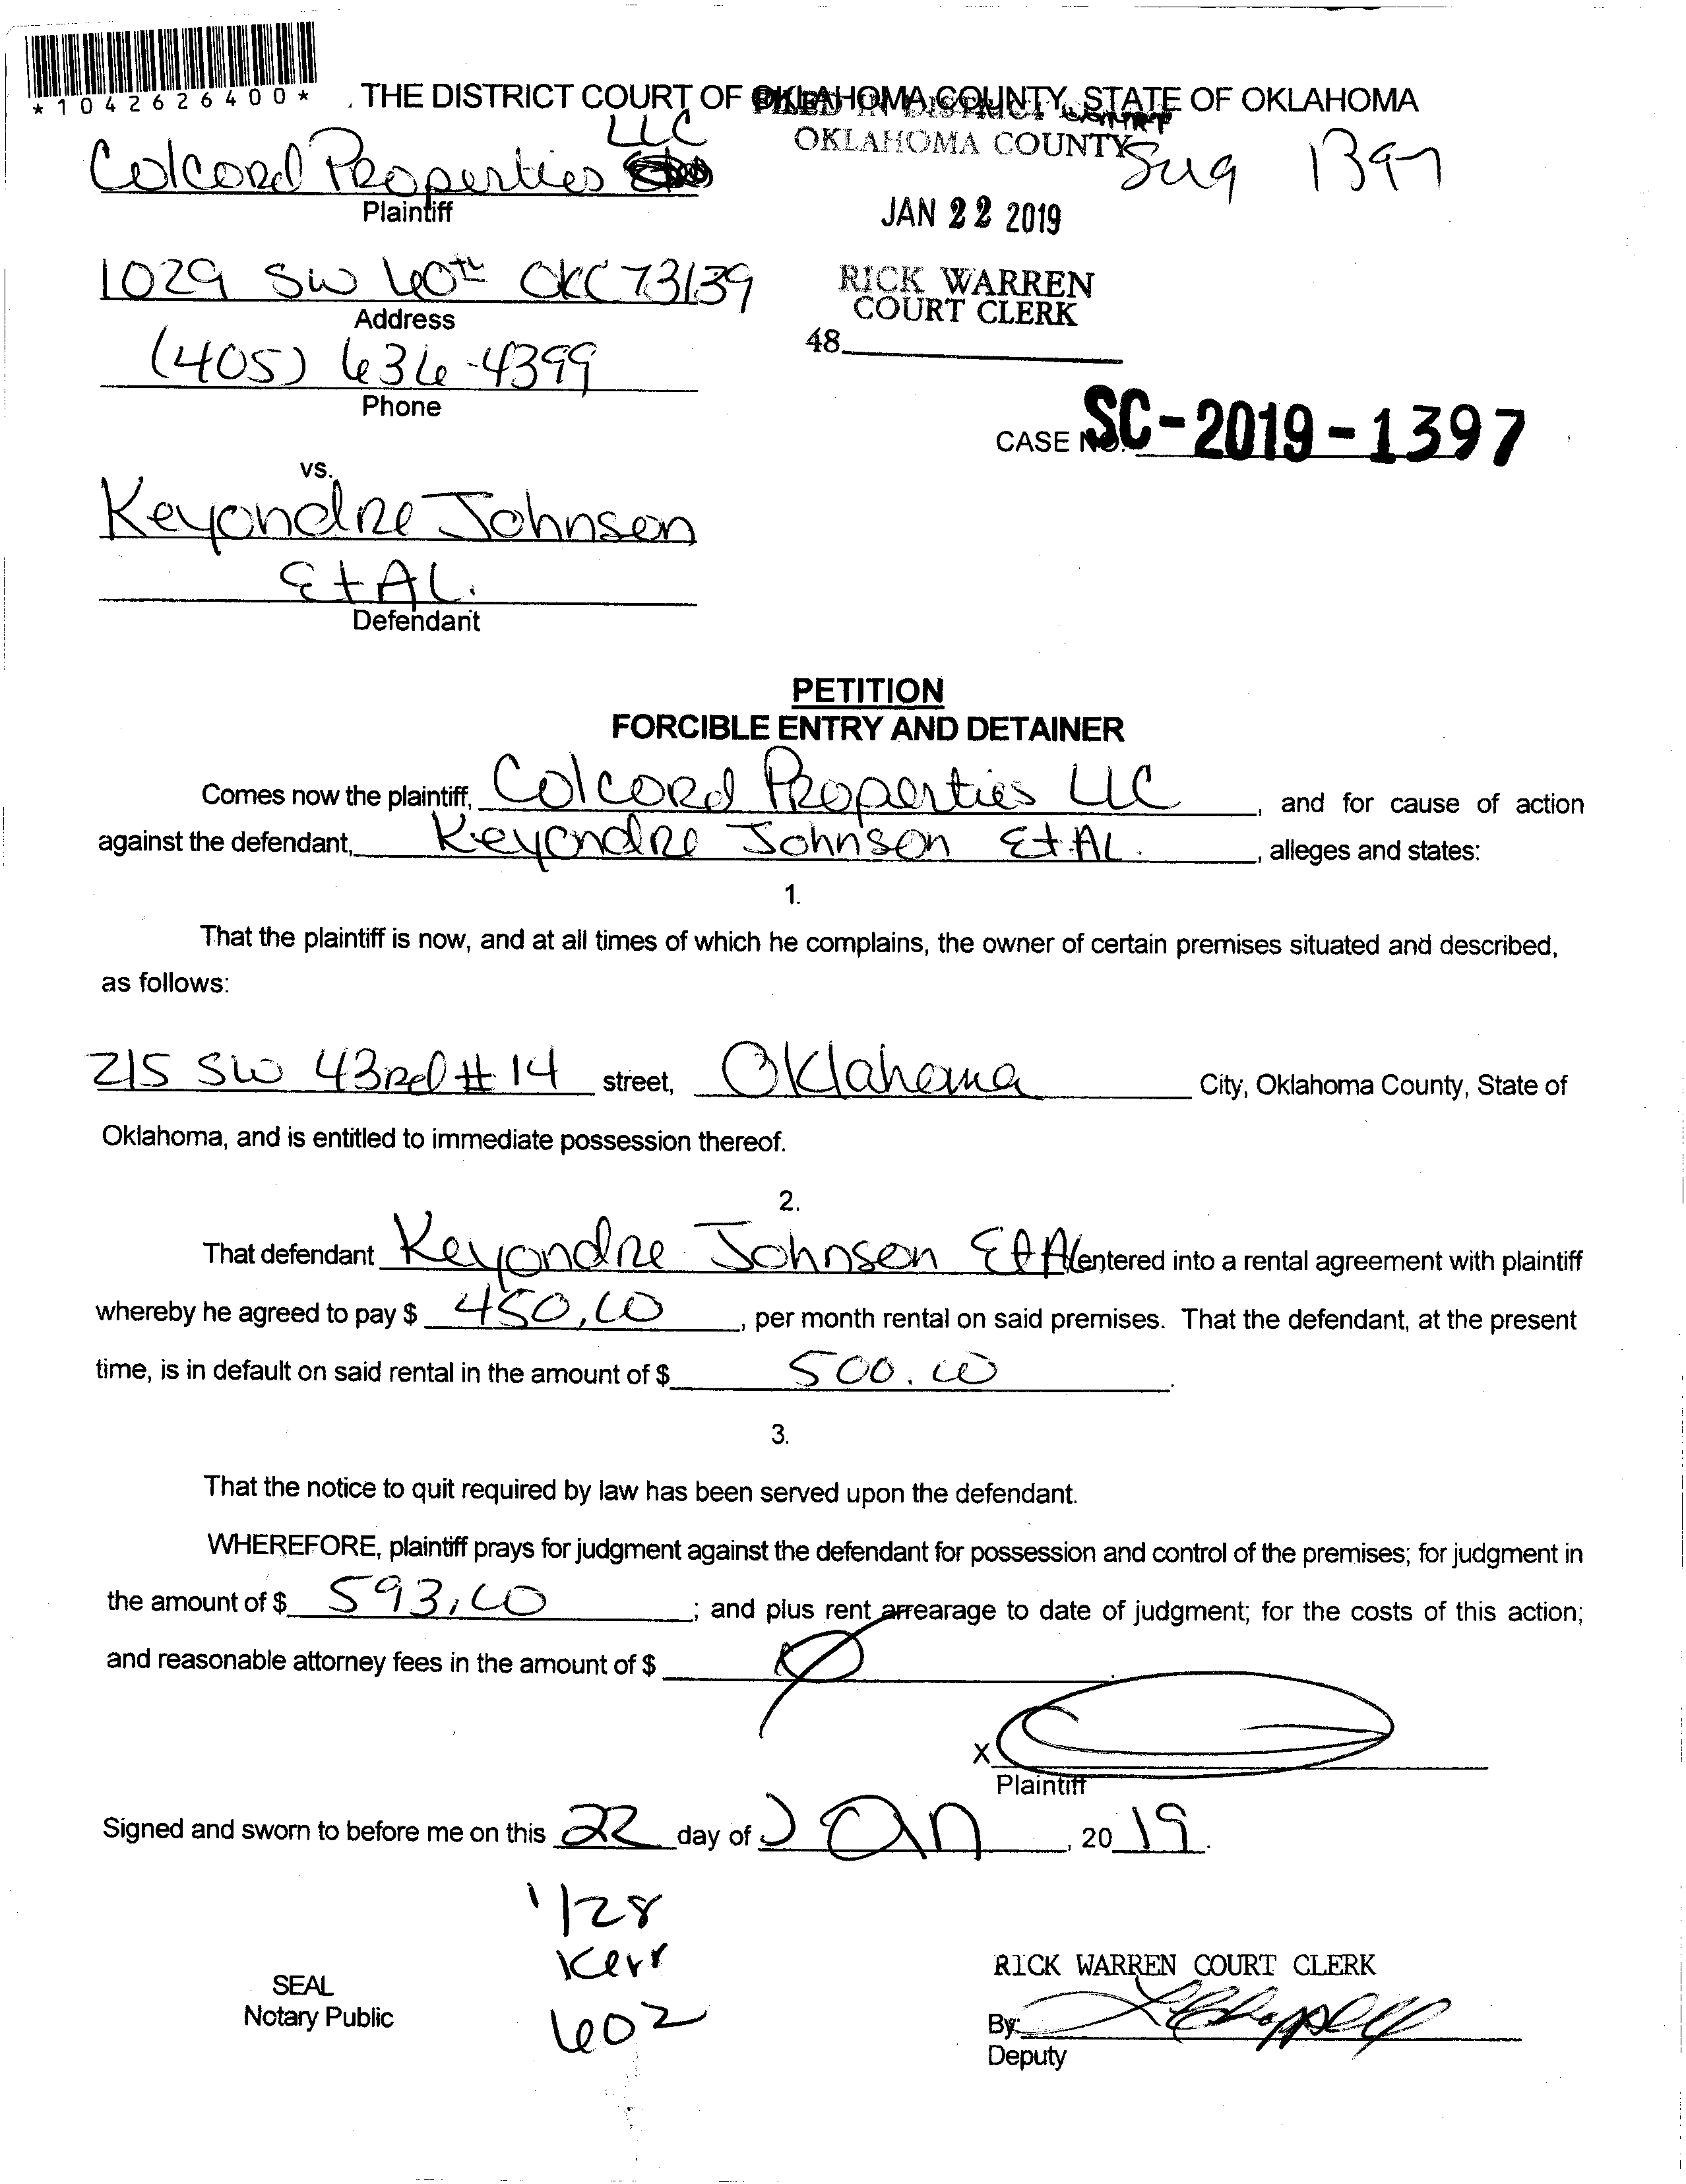 *1042626400*
THE DISTRICT COURT OF OKLAHOMA COUNTY, STATE OF OKLAHOMA
FILED IN DISTRICT COURT
OKLAHOMA COUNTY
LLC
Colcord Properties
1397
Plaintiff
JAN 22 2019
1029 SW 60th OKC 73139
Address
RICK WARREN
COURT CLERK
(405) 636-4399
48
Phone
CASE NO. SC-2019-1397
vs.
Keyondre Johnson
Et AL.
Defendant
PETITION
FORCIBLE ENTRY AND DETAINER
Comes now the plaintiff, Colcord Properties LLC, and for cause of action
against the defendant, Keyondre Johnson Et.AL., alleges and states:
1.
That the plaintiff is now, and at all times of which he complains, the owner of certain premises situated and described,
as follows:
215 SW 43rd #14 street, Oklahoma City, Oklahoma County, State of
Oklahoma, and is entitled to immediate possession thereof.
2.
That defendant Keyondre Johnson Et Al entered into a rental agreement with plaintiff
whereby he agreed to pay $ 450.00, per month rental on said premises. That the defendant, at the present
time, is in default on said rental in the amount of $ 500.00.
3.
That the notice to quit required by law has been served upon the defendant.
WHEREFORE, plaintiff prays for judgment against the defendant for possession and control of the premises; for judgment in
the amount of $ 593.00; and plus rent arrearage to date of judgment; for the costs of this action;
and reasonable attorney fees in the amount of $ 0
X
Plaintiff
Signed and sworn to before me on this 22 day of Jan, 2019.
1/28
Kerr
602
SEAL
Notary Public
RICK WARREN COURT CLERK
By:
Deputy